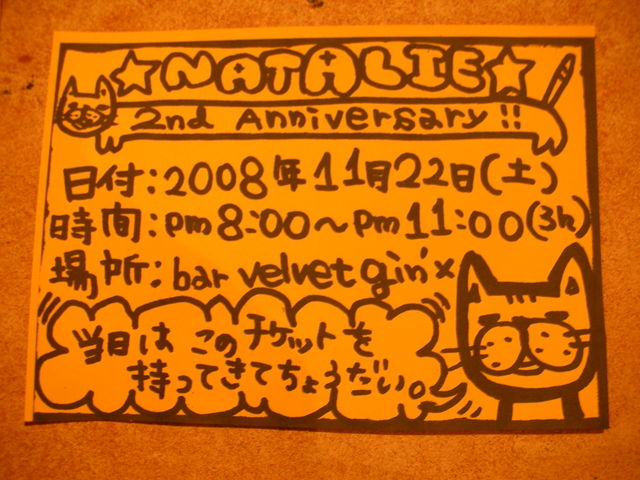 ☆NATALIE☆
2nd Anniversary!!
日付:2008年11月22日(土)
時間:pm8:00〜pm11:00(3h)
場所:bar velvet gin'x
当日は このチケットを
持ってきてちょうだい。